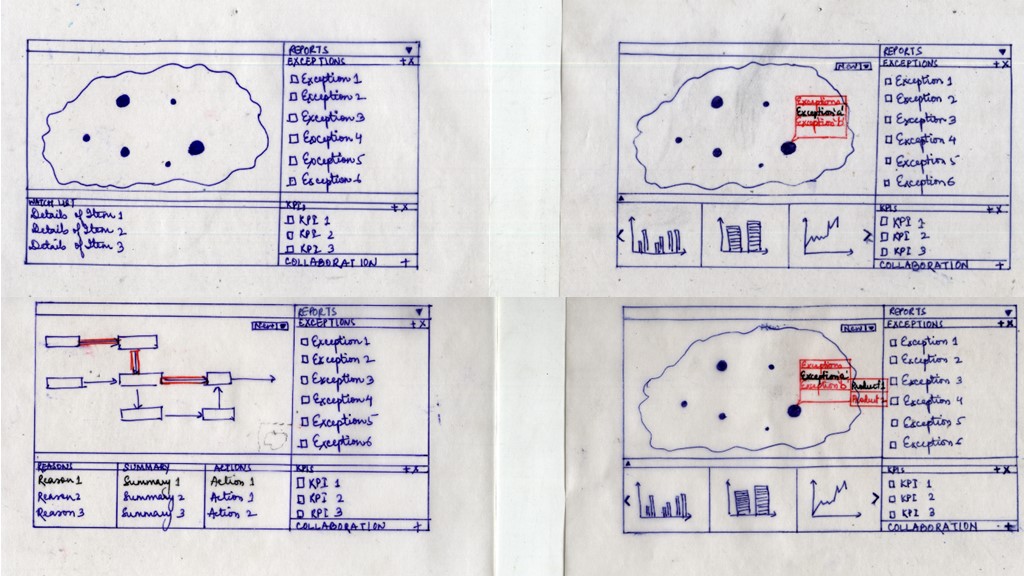 REPORTS
EXCEPTIONS + x
Exception 1
Exception 2
Exception 3
Exception 4
Exception 5
Exception 6
WATCH LIST
Details of Item 1
Details of Item 2
Details of Item 3
KPIs + x
KPI 1
KPI 2
KPI 3
COLLABORATION +
REPORTS
EXCEPTIONS + x
Now
Exception 1
Exception 2
Exception 3
Exception 4
Exception 5
Exception 6
Exceptions
Exception 'a'
Exception 'b'
KPIs + x
KPI 1
KPI 2
KPI 3
COLLABORATION +
REPORTS
EXCEPTIONS + x
Now
Exception 1
Exception 2
Exception 3
Exception 4
Exception 5
Exception 6
REASONS SUMMARY ACTIONS
Reason 1 Summary 1 Action 1
Reason 2 Summary 2 Action 1
Reason 3 Summary 3 Action 2
KPIs + x
KPI 1
KPI 2
KPI 3
COLLABORATION +
REPORTS
EXCEPTIONS + x
Now
Exception 1
Exception 2
Exception 3
Exception 4
Exception 5
Exception 6
Exceptions
Exception 'a'
Exception 'b'
Product 1
Product 2
KPIs + x
KPI 1
KPI 2
KPI 3
COLLABORATION +